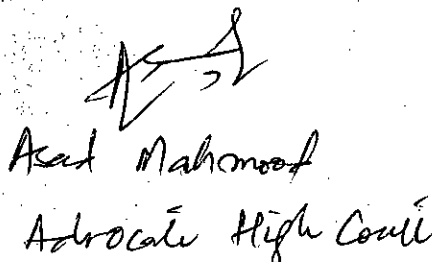 Asad Mahmood
Advocate High Court